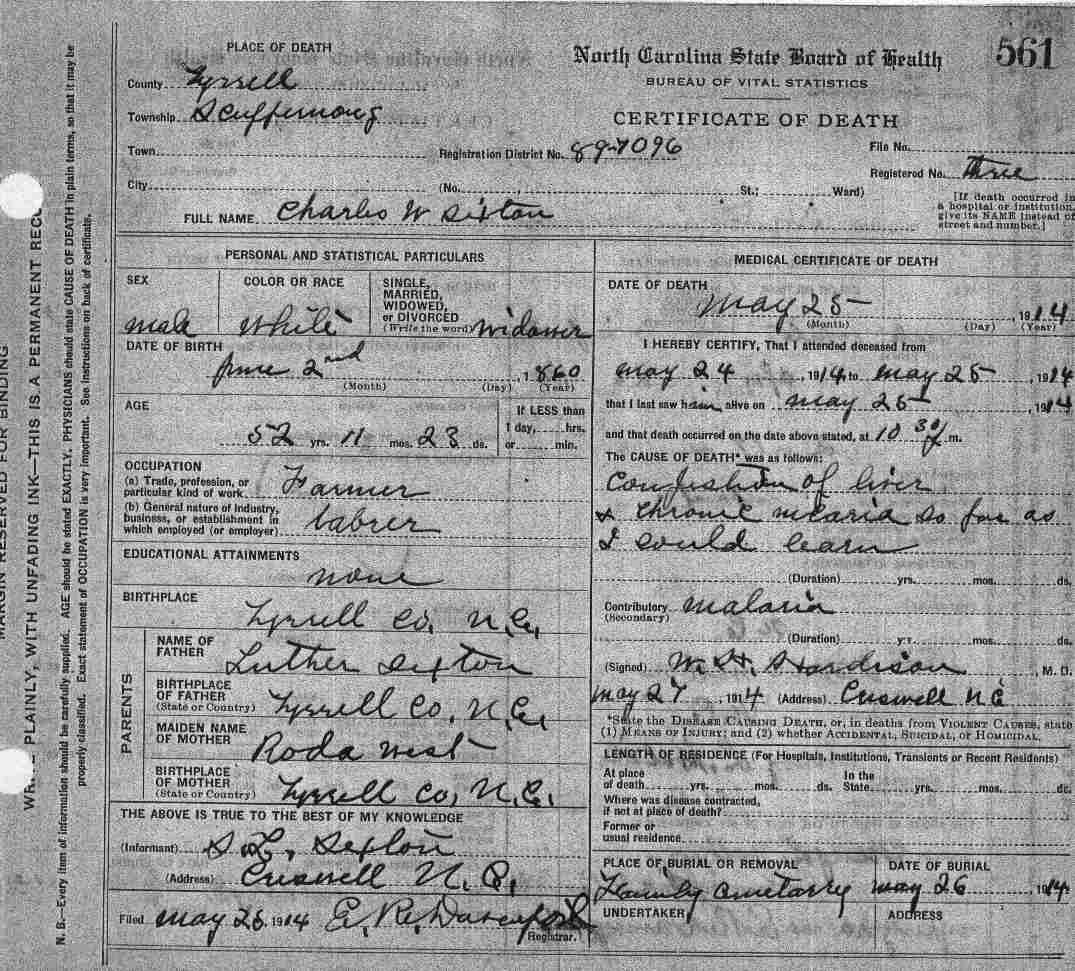 MARGIN RESERVED FOR BINDING
WRITE PLAINLY, WITH UNFADING INK—THIS IS A PERMANENT RECO
N. B.—Every item of information should be carefully supplied. AGE should be stated EXACTLY. PHYSICIANS should state CAUSE OF DEATH in plain terms, so that it may be
properly classified. Exact statement of OCCUPATION is very important. See instructions on back of certificate.
PLACE OF DEATH
County Tyrrell
Township Scuppernong
Town
City
North Carolina State Board of Health
561
BUREAU OF VITAL STATISTICS
CERTIFICATE OF DEATH
Registration District No. 89-7096
File No.
Registered No. Three
(No. , St.; Ward)
[If death occurred in
a hospital or institution,
give its NAME instead of
street and number.]
FULL NAME Charles W Sexton
PERSONAL AND STATISTICAL PARTICULARS
SEX
male
COLOR OR RACE
white
SINGLE,
MARRIED,
WIDOWED,
or DIVORCED
(Write the word) Widower
DATE OF BIRTH
June 2nd , 1860
(Month) (Day) (Year)
AGE
52 yrs. 11 mos. 23 ds.
If LESS than
1 day, hrs.
or min.
OCCUPATION
(a) Trade, profession, or
particular kind of work Farmer
(b) General nature of industry,
business, or establishment in
which employed (or employer) labrer
EDUCATIONAL ATTAINMENTS
none
BIRTHPLACE
Tyrrell Co, N.C.
PARENTS
NAME OF
FATHER
Luther Sexton
BIRTHPLACE
OF FATHER
(State or Country) Tyrrell Co, N.C.
MAIDEN NAME
OF MOTHER Roda West
BIRTHPLACE
OF MOTHER
(State or Country) Tyrrell Co, N.C.
THE ABOVE IS TRUE TO THE BEST OF MY KNOWLEDGE
(Informant) S. L. Sexton
(Address) Creswell N. C.
Filed may 28, 1914 E. R. Davenport
Registrar.
MEDICAL CERTIFICATE OF DEATH
DATE OF DEATH
May 25 , 1914
(Month) (Day) (Year)
I HEREBY CERTIFY, That I attended deceased from
may 24 , 1914 to may 25 , 1914
that I last saw him alive on may 25 , 1914
and that death occurred on the date above stated, at 10 30 m.
The CAUSE OF DEATH* was as follows:
Congestion of liver
& chronic malaria so far as
I could learn
(Duration) yrs. mos. ds.
Contributory malaria
(Secondary)
(Duration) yrs. mos. ds.
(Signed) W. H. Hardison , M. D.
may 27 , 1914 (Address) Creswell N C
*State the DISEASE CAUSING DEATH, or, in deaths from VIOLENT CAUSES, state
(1) MEANS OF INJURY; and (2) whether ACCIDENTAL, SUICIDAL, or HOMICIDAL.
LENGTH OF RESIDENCE (For Hospitals, Institutions, Transients or Recent Residents)
At place
of death yrs. mos. ds.
In the
State yrs. mos. ds.
Where was disease contracted,
if not at place of death?
Former or
usual residence
PLACE OF BURIAL OR REMOVAL
Family Cemetarry
DATE OF BURIAL
may 26 , 1914
UNDERTAKER
ADDRESS